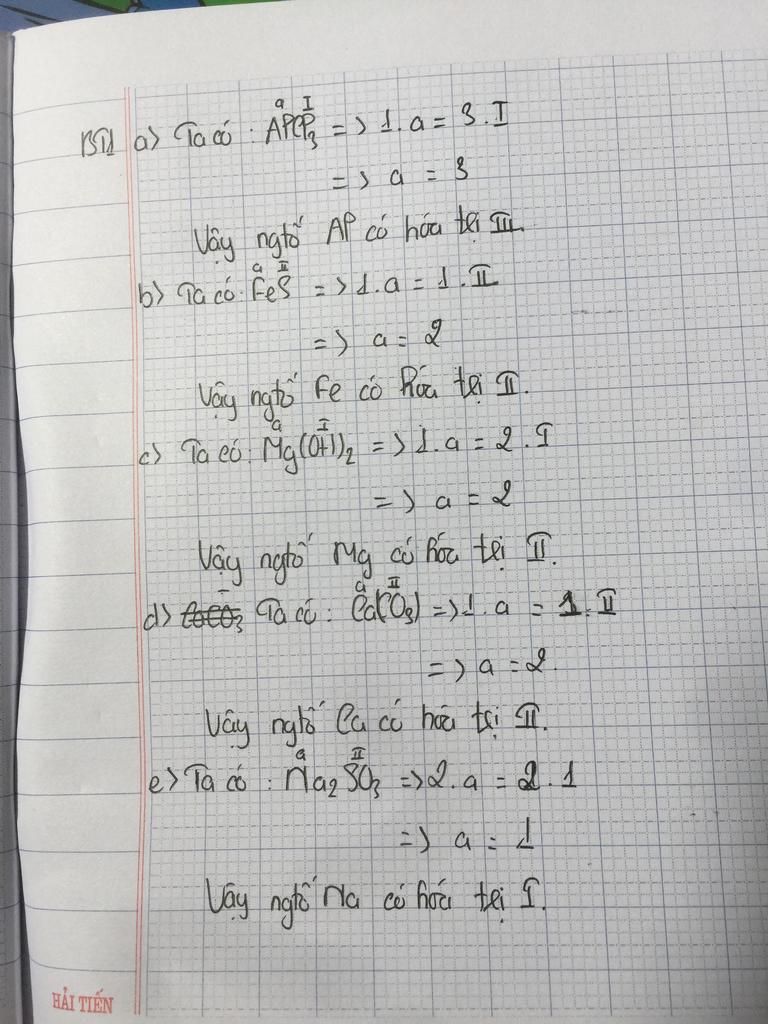 BT1 a) Ta có : AlCl₃ => 1.a = 3.I
a I
=> a = 3
Vậy ngtố Al có hóa trị III
b) Ta có: FeS => 1.a = 1.II
a II
=> a = 2
Vậy ngtố Fe có hóa trị II.
c) Ta có: Mg(OH)₂ => 1.a = 2.I
a I
=> a = 2
Vậy ngtố Mg có hóa trị II.
d) CaCO₃ Ta có : Ca(CO₃) => 1.a = 1.II
a II
=> a = 2.
Vậy ngtố Ca có hóa trị II.
e) Ta có : Na₂SO₃ => 2.a = 2.1
a II
=> a = 1
Vậy ngtố Na có hóa trị I.
HẢI TIẾN